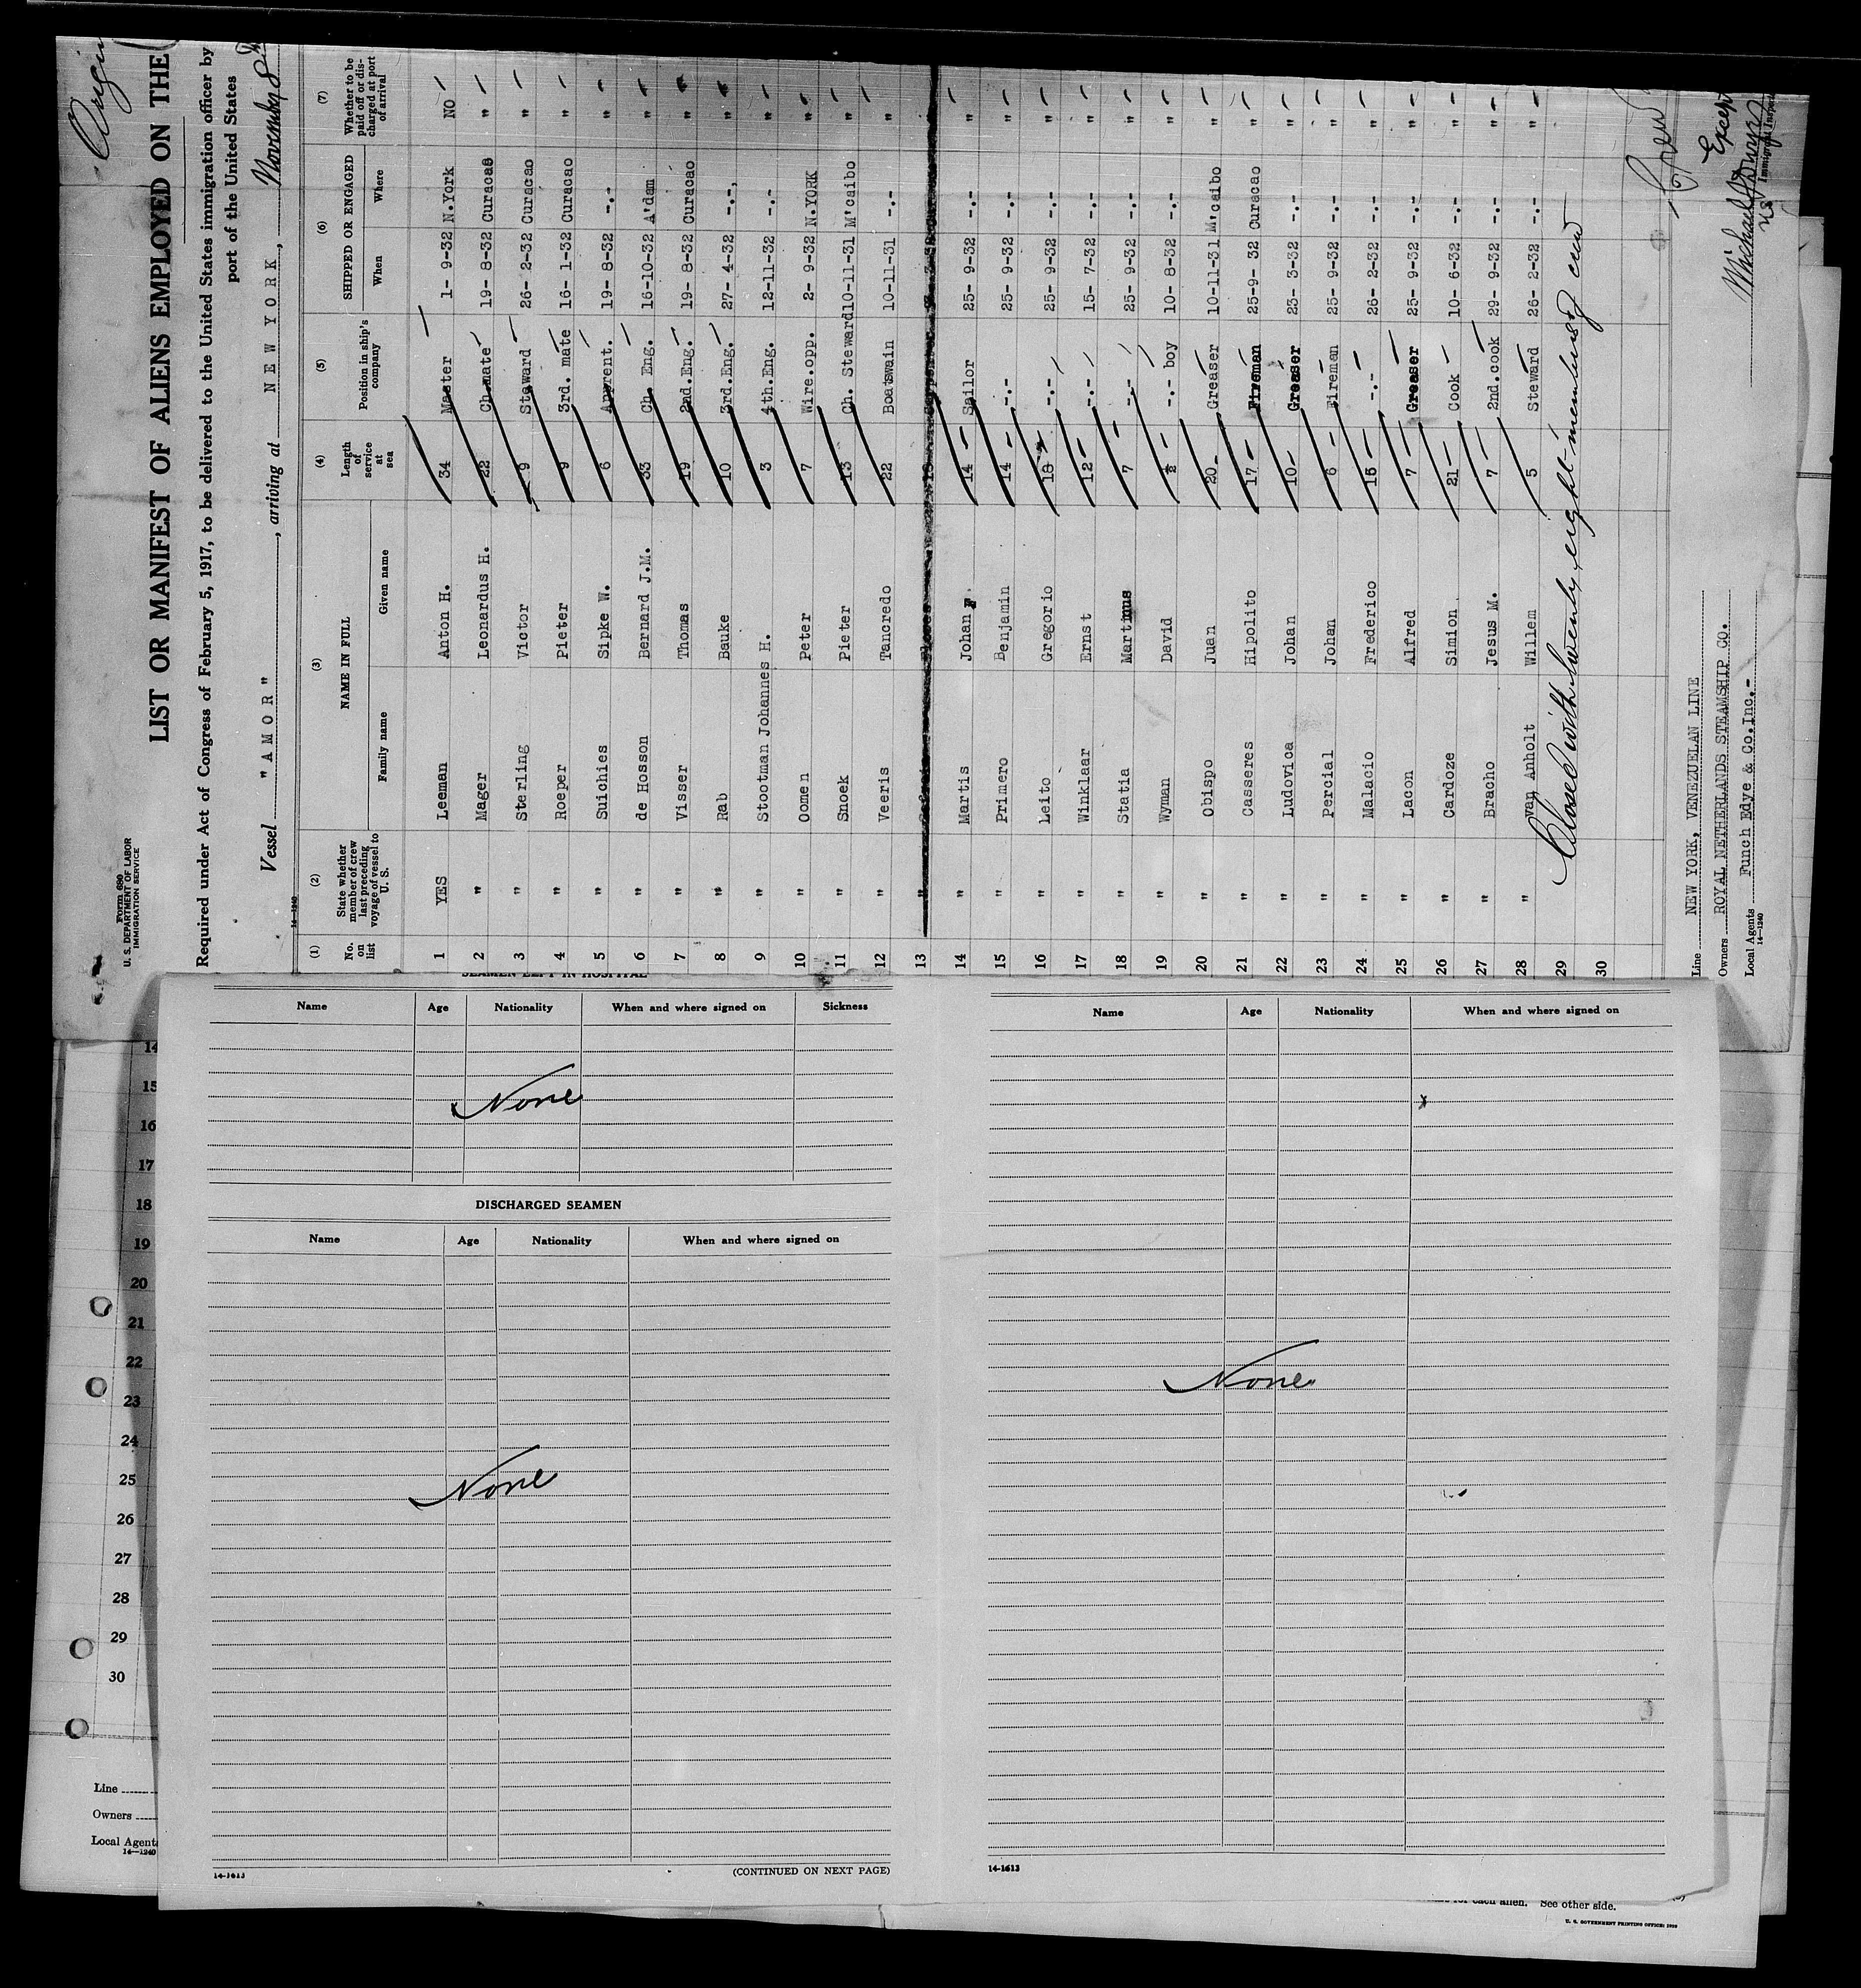 Form 680
U. S. DEPARTMENT OF LABOR
IMMIGRATION SERVICE
LIST OR MANIFEST OF ALIENS EMPLOYED ON THE
Required under Act of Congress of February 5, 1917, to be delivered to the United States immigration officer by
port of the United States
Vessel "AMOR", arriving at NEW YORK, November 8th
14—1240
(1) (2) (3) (4) (5) (6) (7)
No. on list State whether member of crew last preceding voyage of vessel to U. S. NAME IN FULL Length of service at sea Position in ship's company SHIPPED OR ENGAGED Whether to be paid off or discharged at port of arrival
Family name Given name When Where
1 YES Leeman Anton H. 34 Master 1- 9-32 N.York NO
2 " Mager Leonardus H. 22 Ch.mate 19- 8-32 Curacao "
3 " Sterling Victor 19 Steward 26- 2-32 Curacao "
4 " Roeper Pieter 9 3rd. mate 16- 1-32 Curacao "
5 " Suichies Sipke W. 6 Apprent. 19- 8-32 -.- "
6 " de Hosson Bernard J.M. 33 Ch. Eng. 16-10-32 A'dam "
7 " Visser Thomas 19 2nd.Eng. 19- 8-32 Curacao "
8 " Rab Bauke 10 3rd.Eng. 27- 4-32 -.-, "
9 " Stootman Johannes H. 3 4th.Eng. 12-11-32 -.- "
10 " Oomen Peter 7 Wire.opp. 2- 9-32 N.YORK "
11 " Snoek Pieter 13 Ch. Steward 10-11-31 M'caibo "
12 " Veeris Tancredo 22 Boatswain 10-11-31 -.- "
13 "
14 " Martis Johan 14 Sailor 25- 9-32 -.- "
15 " Primero Benjamin 14 -.- 25- 9-32 -.- "
16 " Leito Gregorio 18 -.- 25- 9-32 -.- "
17 " Winklaar Ernst 12 -.- 15- 7-32 -.- "
18 " Statia Martinus 7 -.- 25- 9-32 -.- "
19 " Wyman David ½ -.- boy 10- 8-32 -.- "
20 " Obispo Juan 20 Greaser 10-11-31 M'caibo "
21 " Casseres Hipolito 17 Fireman 25-9- 32 Curacao "
22 " Ludovica Johan 10 Greaser 23- 3-32 -.- "
23 " Percial Johan 6 Fireman 25- 9-32 -.- "
24 " Malacio Frederico 15 -.- 26- 2-32 -.- "
25 " Lacon Alfred 7 Greaser 25- 9-32 -.- "
26 " Cardoze Simion 21 Cook 10- 6-32 -.- "
27 " Bracho Jesus M. 7 2nd.cook 29- 9-32 -.- "
28 " van Anholt Willem 5 Steward 26- 2-32 -.- "
29 Closed with twenty eight members of crew
30
Crew
Except
Line NEW YORK, VENEZUELAN LINE
Owners ROYAL NETHERLANDS STEAMSHIP CO.
Local Agents Funch Edye & Co.Inc.-
14—1240
Immigrant Inspector
SEAMEN LEFT IN HOSPITAL
Name Age Nationality When and where signed on Sickness
None
DISCHARGED SEAMEN
Name Age Nationality When and where signed on
None
14-1613
(CONTINUED ON NEXT PAGE)
Name Age Nationality When and where signed on
None
14-1613
14
15
16
17
18
19
20
21
22
23
24
25
26
27
28
29
30
Line
Owners
Local Agents
14—1240
for each alien. See other side.
U. S. GOVERNMENT PRINTING OFFICE: